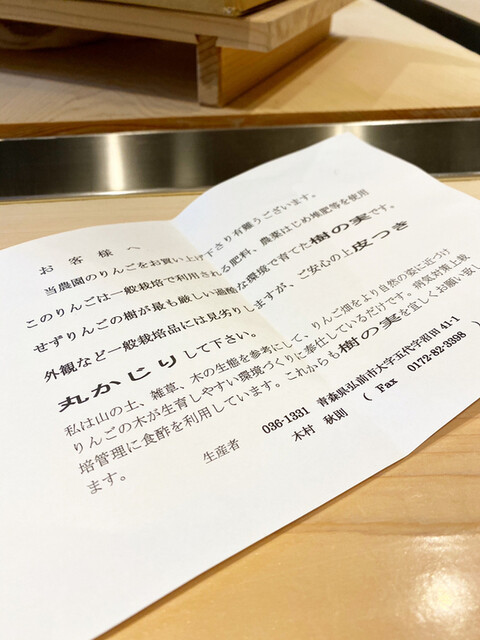 お客様へ
当農園のりんごをお買い上げ下さり有難うございます。
このりんごは一般栽培で利用される肥料、農薬はじめ堆肥等を使用
せずりんごの樹が最も厳しい過酷な環境で育てた樹の実です。
外観など一般栽培品には見劣りしますが、ご安心の上皮つき
丸かじりして下さい。
私は山の土、雑草、木の生態を参考にして、りんご畑をより自然の姿に近づけ
りんごの木が生育しやすい環境づくりに奉仕しているだけです。病気対策上栽
培管理に食酢を利用しています。これからも樹の実を宜しくお願い致し
ます。
生産者 036-1331 青森県弘前市大字五代字祖田 41-1
木村 秋則 ( Fax 0172-82-3398 )